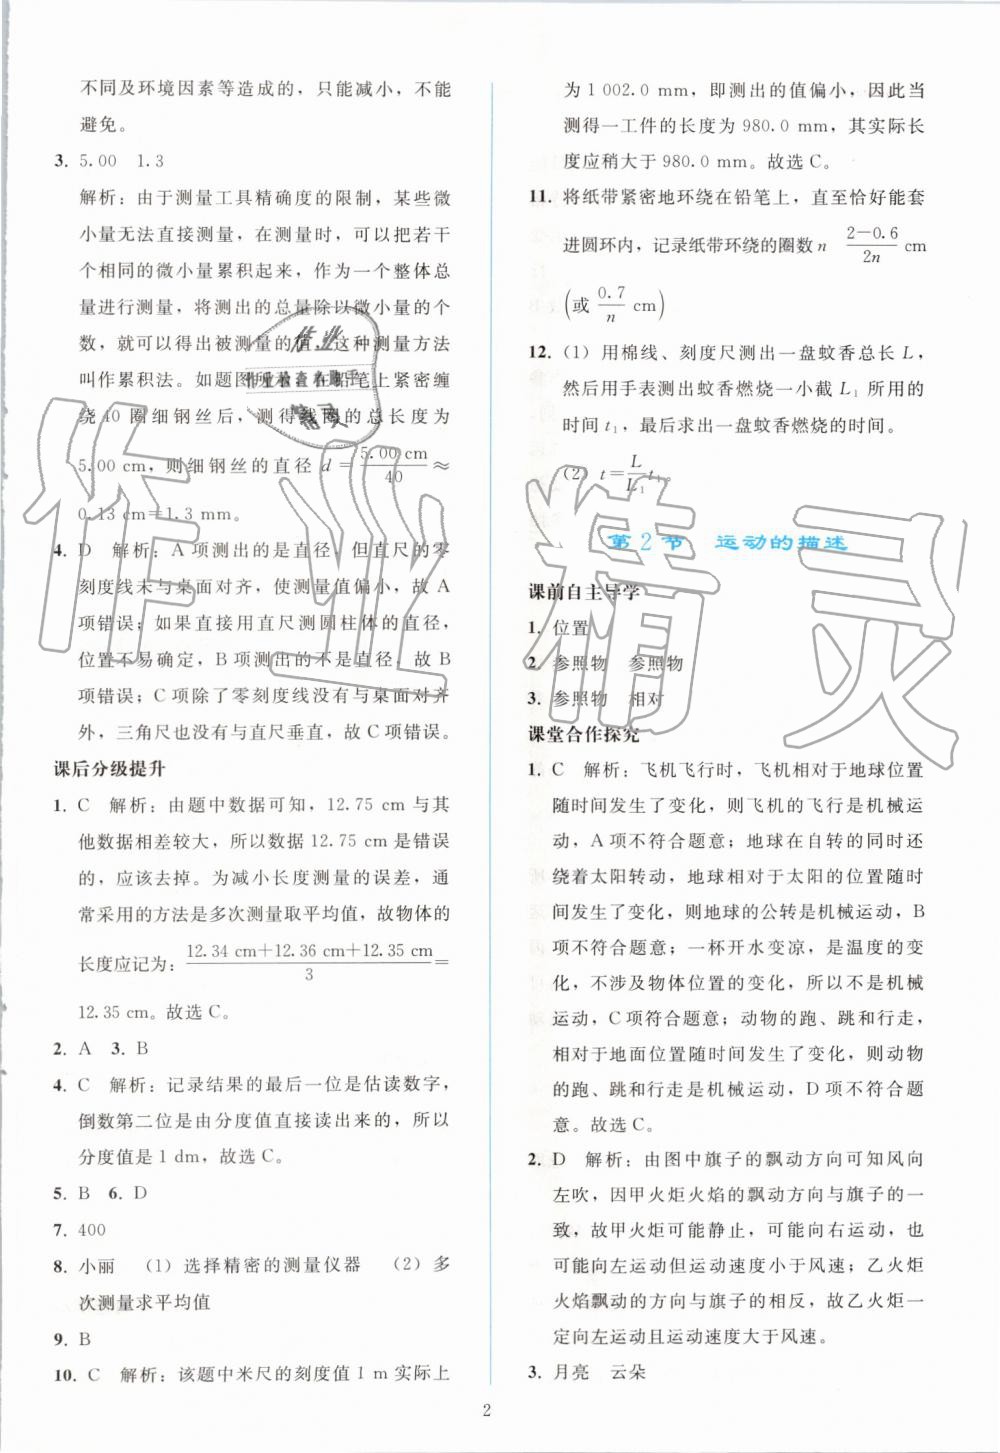 不同及环境因素等造成的，只能减小，不能
避免。
3. 5.00　1.3
解析：由于测量工具精确度的限制，某些微
小量无法直接测量，在测量时，可以把若干
个相同的微小量累积起来，作为一个整体总
量进行测量，将测出的总量除以微小量的个
数，就可以得出被测量的值，这种测量方法
叫作累积法。如题图所示，在铅笔上紧密缠
绕 40 圈细钢丝后，测得线圈的总长度为
5.00 cm，则细钢丝的直径 d＝5.00 cm/40≈
0.13 cm＝1.3 mm。
4. D　解析：A 项测出的是直径，但直尺的零
刻度线未与桌面对齐，使测量值偏小，故 A
项错误；如果直接用直尺测圆柱体的直径，
位置不易确定，B 项测出的不是直径，故 B
项错误；C 项除了零刻度线没有与桌面对齐
外，三角尺也没有与直尺垂直，故 C 项错误。
课后分级提升
1. C　解析：由题中数据可知，12.75 cm 与其
他数据相差较大，所以数据 12.75 cm 是错误
的，应该去掉。为减小长度测量的误差，通
常采用的方法是多次测量取平均值，故物体的
长度应记为：(12.34 cm＋12.36 cm＋12.35 cm)/3＝
12.35 cm。故选 C。
2. A　3. B
4. C　解析：记录结果的最后一位是估读数字，
倒数第二位是由分度值直接读出来的，所以
分度值是 1 dm，故选 C。
5. B　6. D
7. 400
8. 小丽　（1）选择精密的测量仪器　（2）多
次测量求平均值
9. B
10. C　解析：该题中米尺的刻度值 1 m 实际上
为 1 002.0 mm，即测出的值偏小，因此当
测得一工件的长度为 980.0 mm，其实际长
度应稍大于 980.0 mm。故选 C。
11. 将纸带紧密地环绕在铅笔上，直至恰好能套
进圆环内，记录纸带环绕的圈数 n　(2－0.6)/2n cm
（或 0.7/n cm）
12.（1）用棉线、刻度尺测出一盘蚊香总长 L，
然后用手表测出蚊香燃烧一小截 L₁ 所用的
时间 t₁，最后求出一盘蚊香燃烧的时间。
（2）t＝L/L₁ t₁。
第 2 节　运动的描述
课前自主导学
1. 位置
2. 参照物　参照物
3. 参照物　相对
课堂合作探究
1. C　解析：飞机飞行时，飞机相对于地球位置
随时间发生了变化，则飞机的飞行是机械运
动，A 项不符合题意；地球在自转的同时还
绕着太阳转动，地球相对于太阳的位置随时
间发生了变化，则地球的公转是机械运动，B
项不符合题意；一杯开水变凉，是温度的变
化，不涉及物体位置的变化，所以不是机械
运动，C 项符合题意；动物的跑、跳和行走，
相对于地面位置随时间发生了变化，则动物
的跑、跳和行走是机械运动，D 项不符合题
意。故选 C。
2. D　解析：由图中旗子的飘动方向可知风向
左吹，因甲火炬火焰的飘动方向与旗子的一
致，故甲火炬可能静止，可能向右运动，也
可能向左运动但运动速度小于风速；乙火炬
火焰飘动的方向与旗子的相反，故乙火炬一
定向左运动且运动速度大于风速。
3. 月亮　云朵
2
作业精灵
作业
作业检查小助手
精灵